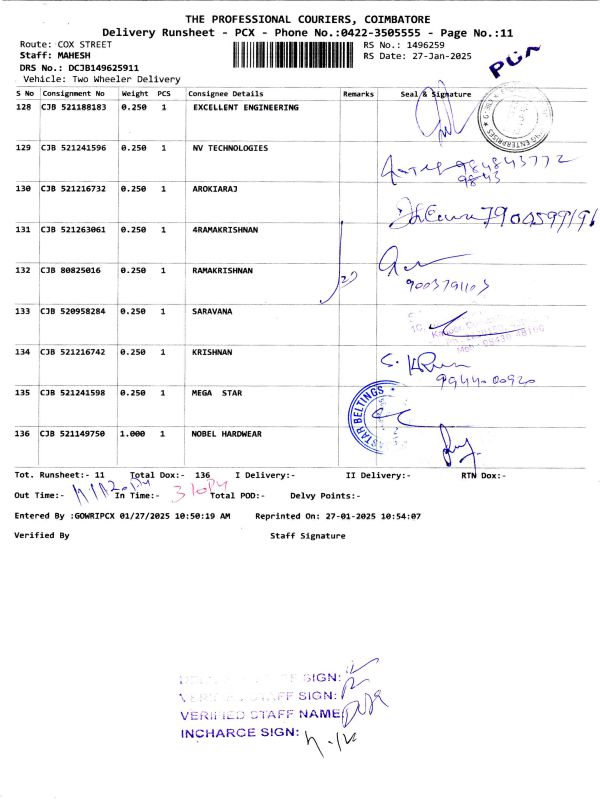 THE PROFESSIONAL COURIERS, COIMBATORE
Delivery Runsheet - PCX - Phone No.:0422-3505555 - Page No.:11
Route: COX STREET RS No.: 1496259
Staff: MAHESH RS Date: 27-Jan-2025
DRS No.: DCJB149625911
Vehicle: Two Wheeler Delivery
S No Consignment No Weight PCS Consignee Details Remarks Seal & Signature
128 CJB 521188183 0.250 1 EXCELLENT ENGINEERING
129 CJB 521241596 0.250 1 NV TECHNOLOGIES
130 CJB 521216732 0.250 1 AROKIARAJ
131 CJB 521263061 0.250 1 4RAMAKRISHNAN
132 CJB 80825016 0.250 1 RAMAKRISHNAN
9003791103
133 CJB 520958284 0.250 1 SARAVANA
134 CJB 521216742 0.250 1 KRISHNAN
99440 00920
135 CJB 521241598 0.250 1 MEGA STAR
STAR BELTINGS
136 CJB 521149750 1.000 1 NOBEL HARDWEAR
Tot. Runsheet:- 11 Total Dox:- 136 I Delivery:- II Delivery:- RTN Dox:-
Out Time:- In Time:- Total POD:- Delvy Points:-
Entered By :GOWRIPCX 01/27/2025 10:50:19 AM Reprinted On: 27-01-2025 10:54:07
Verified By Staff Signature
SIGN:
VERIFIED STAFF SIGN:
VERIFIED STAFF NAME:
INCHARGE SIGN: